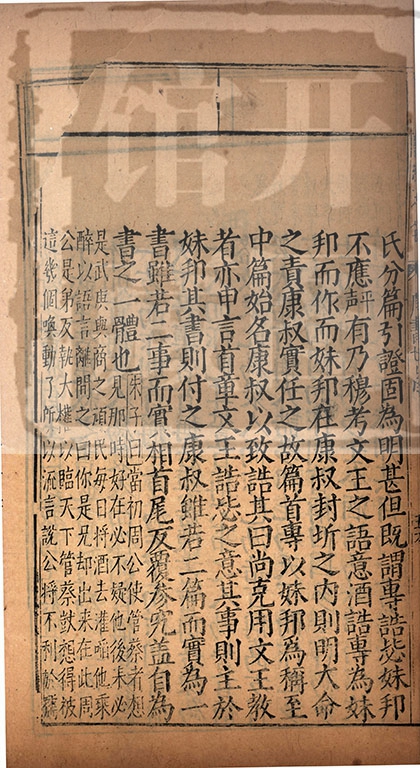 氏分篇引證固為明甚但既謂專誥毖妹邦
不應幷有乃穆考文王之語意酒誥專為妹
邦而作而妹邦在康叔封圻之内則明大命
之責康叔實任之故篇首專以妹邦為稱至
中篇始名康叔以致誥其曰尚克用文王教
者亦申言首章文王誥毖之意其事則主於
妹邦其書則付之康叔雖若二篇而實為一
書雖若二事而實相首尾反覆參究蓋自為
書之一體也朱子曰當初周公使管蔡者想
見那時好在必不疑他後來必
是武庚與商之頑民每日將酒去灌啗他乘
醉以語言離間之曰你是兄却出來在此周
公是弟反執大權以臨天下管蔡獃想得被
這幾個喚動了所以流言說公將不利於孺
开馆